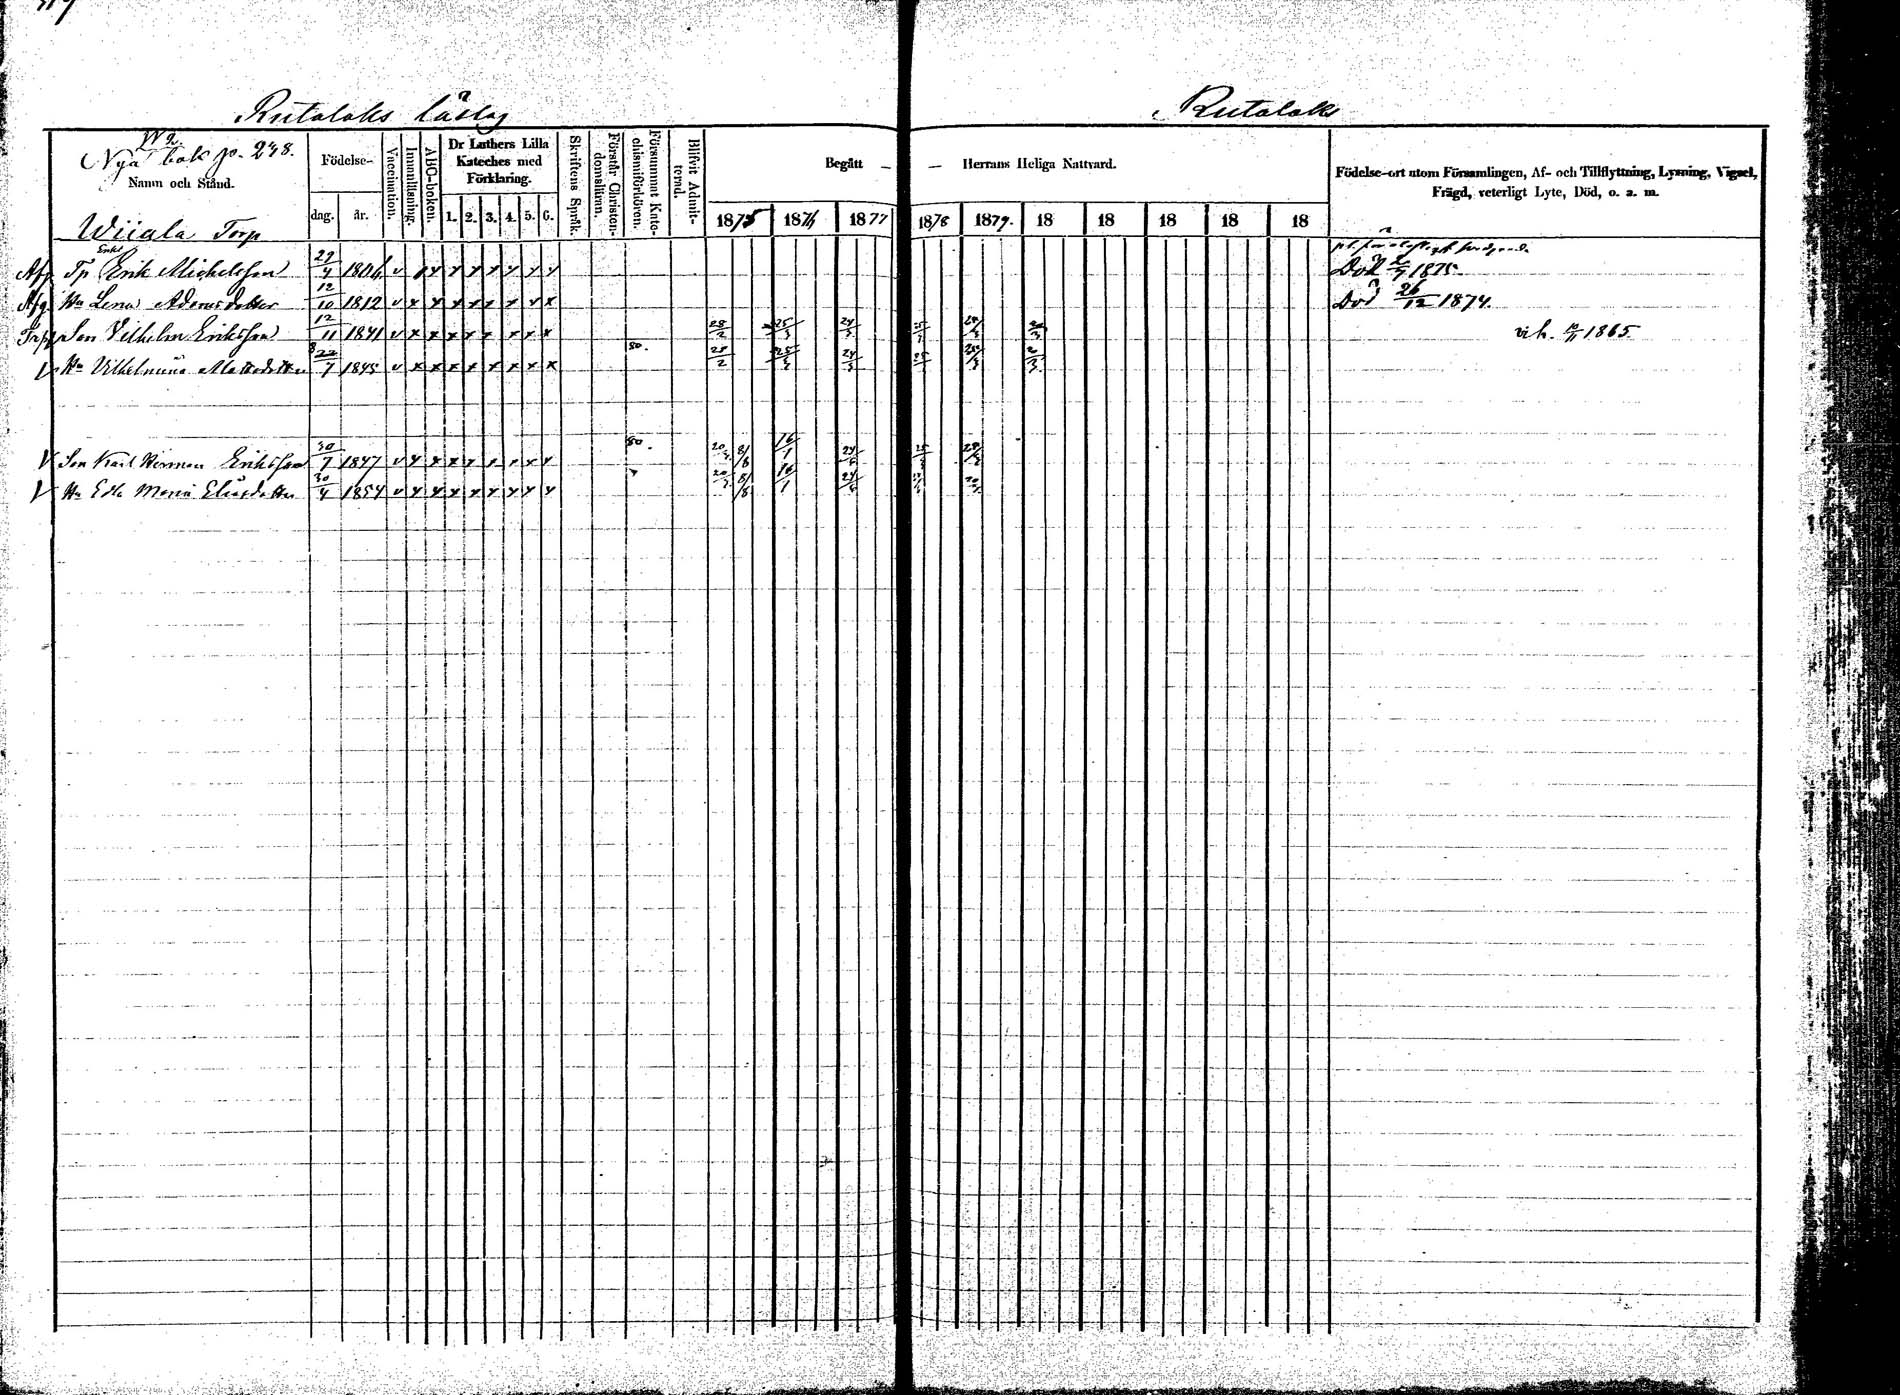 Rutalaks läslag
Rutalaks
Nya bok p. 248.
Namn och Stånd.
Födelse-
dag.
år.
Vaccination.
Innanläsning.
ABC-boken.
Dr Luthers Lilla
Kateches med
Förklaring.
1. 2. 3. 4. 5. 6.
Skriftens Språk.
Förstår Christen-
domsläran.
Försummat Kate-
chismiförhören.
Blifvit Admit-
terad.
Begått — — Herrans Heliga Nattvard.
1875 1876 1877 1878 1879. 18 18 18 18 18
Födelse-ort utom Församlingen, Af- och Tillflyttning, Lysning, Vigsel,
Frägd, veterligt Lyte, Död, o. s. m.
Wiiala Torp
Enkl
Afg Tp Erik Michelsson 29/4 1806 Död 2/7 1875.
Afg. Hu Lena Adamsdotter 12/10 1812 Död 26/12 1874.
Trp Son Vilhelm Eriksson 12/11 1841 28/2 25/3 24/3 vih. 1865.
Hu Vilhelmina Mattsdotter 22/7 1845 80. 28/2 25/3 24/3
Son Karl Herman Eriksson 30/7 1847 80. 8/8 16/1
Hu Edla Maria Eliasdotter 30/4 1854 8/8 16/1